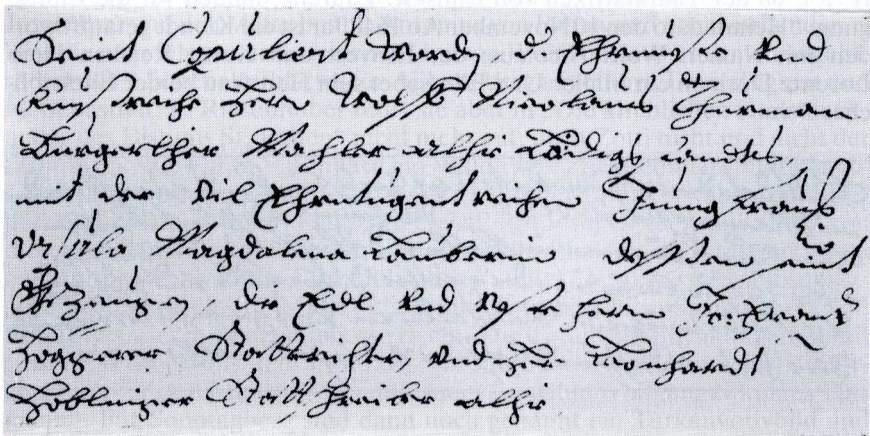 Seint Copuliert word, d Ehrnveste und
Kunstreiche Herr Wolff Nicolaus Thurman
Burgerlicher Mahler alhie Lediges standts,
mit der Vil Ehrntugentreichen Jungfrauen
Ursula Magdalena Lauberin dessen seint
Gezeugen, der Edl und Veste Herr
Stattrichter, und Herr Leonhardt
Stattschreiber alhie